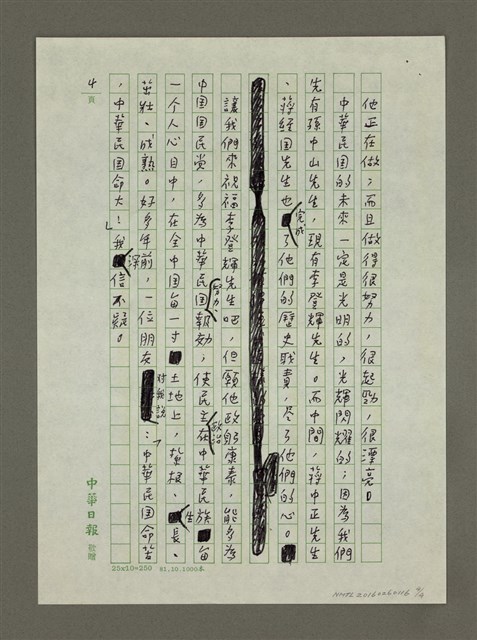 他正在做；而且做得很努力，很起勁，很漂亮。
中華民国的未來一定是光明的，光輝閃耀的；因為我們
先有孫中山先生，現有李登輝先生。而中間，蔣中正先生
、蔣經国先生也完成了他們的歷史職責，尽了他們的心。
讓我們來祝福李登輝先生吧，但願他政躬康泰，能多為
中国国民党，多為中華民国努力報効，使民主政治在中華民族
一个人心目中，在全中国每一寸土地上，紮根、生長、
茁壯、成熟。好多年前，一位朋友對我說：「中華民国命苦
，中華民国命大！」我深信不疑。
4
頁
中華日報
敬贈
25x10=250 81.10.1000本
NMTL20160060116